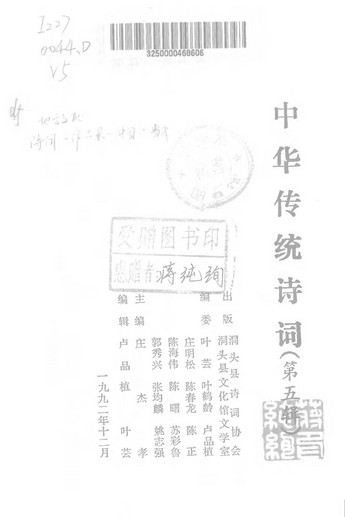 I227
0044.D
V5
3250000468606
中华传统诗词(第五辑)
受赠图书印
惠赠者 蒋纯绚
出版 洞头县诗词协会
洞头县文化馆文学室
编委 叶芸 叶鹤龄 卢品植
庄明松 陈春龙 陈正
陈海伟 陈曙 苏彩鲁
郭秀兴 张均麟 姚志强
主编 庄杰孝
编辑 卢品植 叶芸
一九九二年十二月